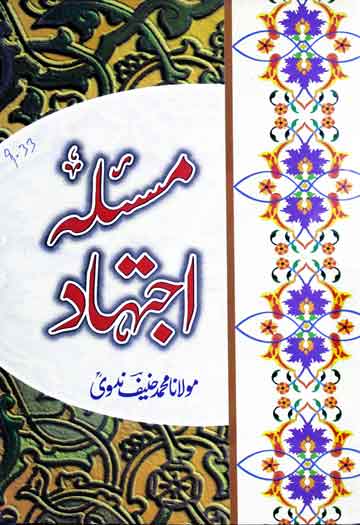 مسئلہٴ
اجتہاد
مولانا محمد حنیف ندویؒ
9.33